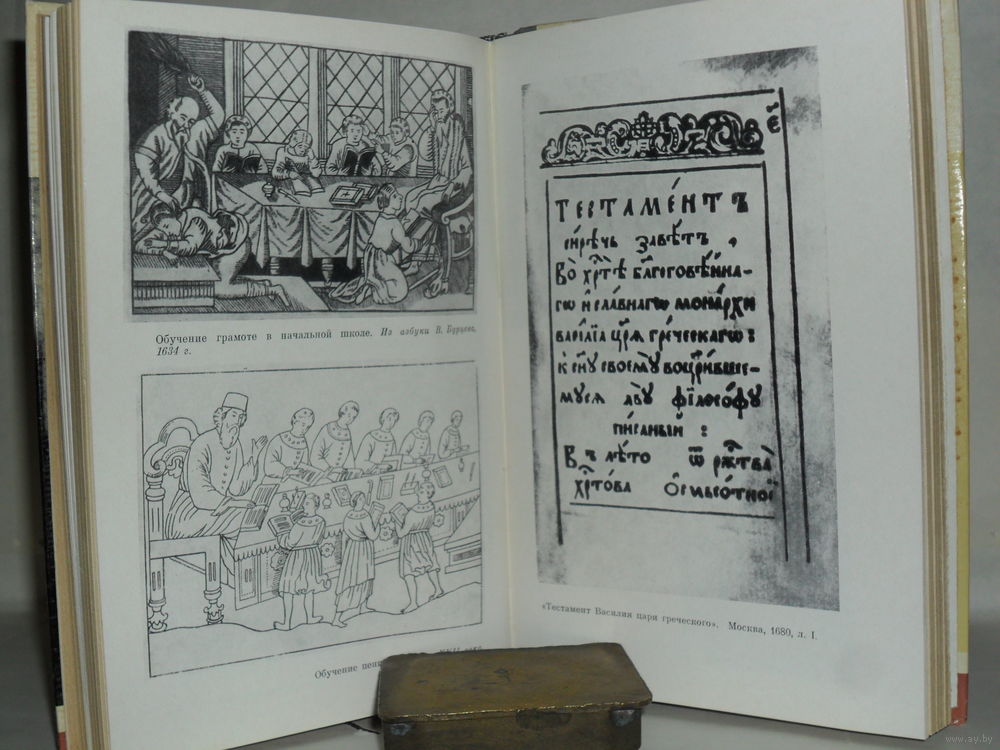 Обучение грамоте в начальной школе. Из азбуки В. Бурцова,
1634 г.
Обучение пения
XVII век.
ТЕСТАМЕ́НТЪ
си́рѣчь завѣ́тъ ,
Во̀ хр҇тѣ̀ бл҃гоговѣ́инна-
гѡ и҆ сла́внагѡ мона́рхи
васи́лїа цр҃ѧ гре́ческагѡ :
къ сн҃у своемꙋ̀ воцр҃и́вше-
мꙋсѧ льву̀ фїло́софу
пи́саный :
Въ лѣ́то ѿ рж҇тва̀
хр҇то́ва
«Тестамент Василия царя греческого». Москва, 1680, л. I.
www.ay.by